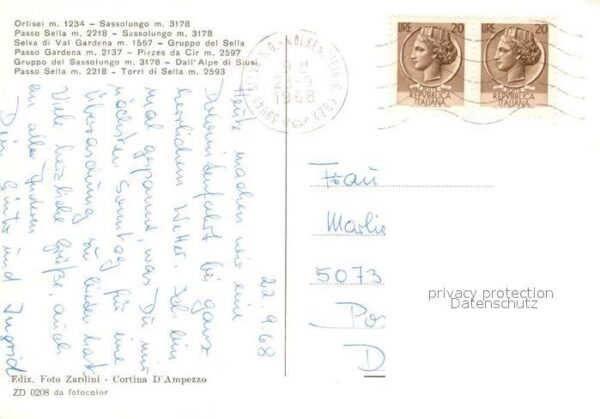 Ortisei m. 1234 - Sassolungo m. 3178
Passo Sella m. 2218 - Sassolungo m. 3178
Selva di Val Gardena m. 1567 - Gruppo del Sella
Passo Gardena m. 2137 - Pizzes da Cir m. 2597
Gruppo del Sassolungo m. 3178 - Dall'Alpe di Siusi
Passo Sella m. 2218 - Torri di Sella m. 2593
LIRE 20
REPVBBLICA
ITALIANA
LIRE 20
REPVBBLICA
ITALIANA
1968
22.9.68
Heute machen wir eine
Dolomitenfahrt bei ganz
herrlichem Wetter. Ich bin
mal gespannt, was Du mir
nächsten Sonntag für eine
Überraschung zu bieten hast.
Viele herzliche Grüße, auch
an alle Anderen
Dein Günter und Ingrid
Frau
5073
Po
D
privacy protection
Datenschutz
Ediz. Foto Zardini - Cortina D'Ampezzo
ZD 0208 da fotocolor